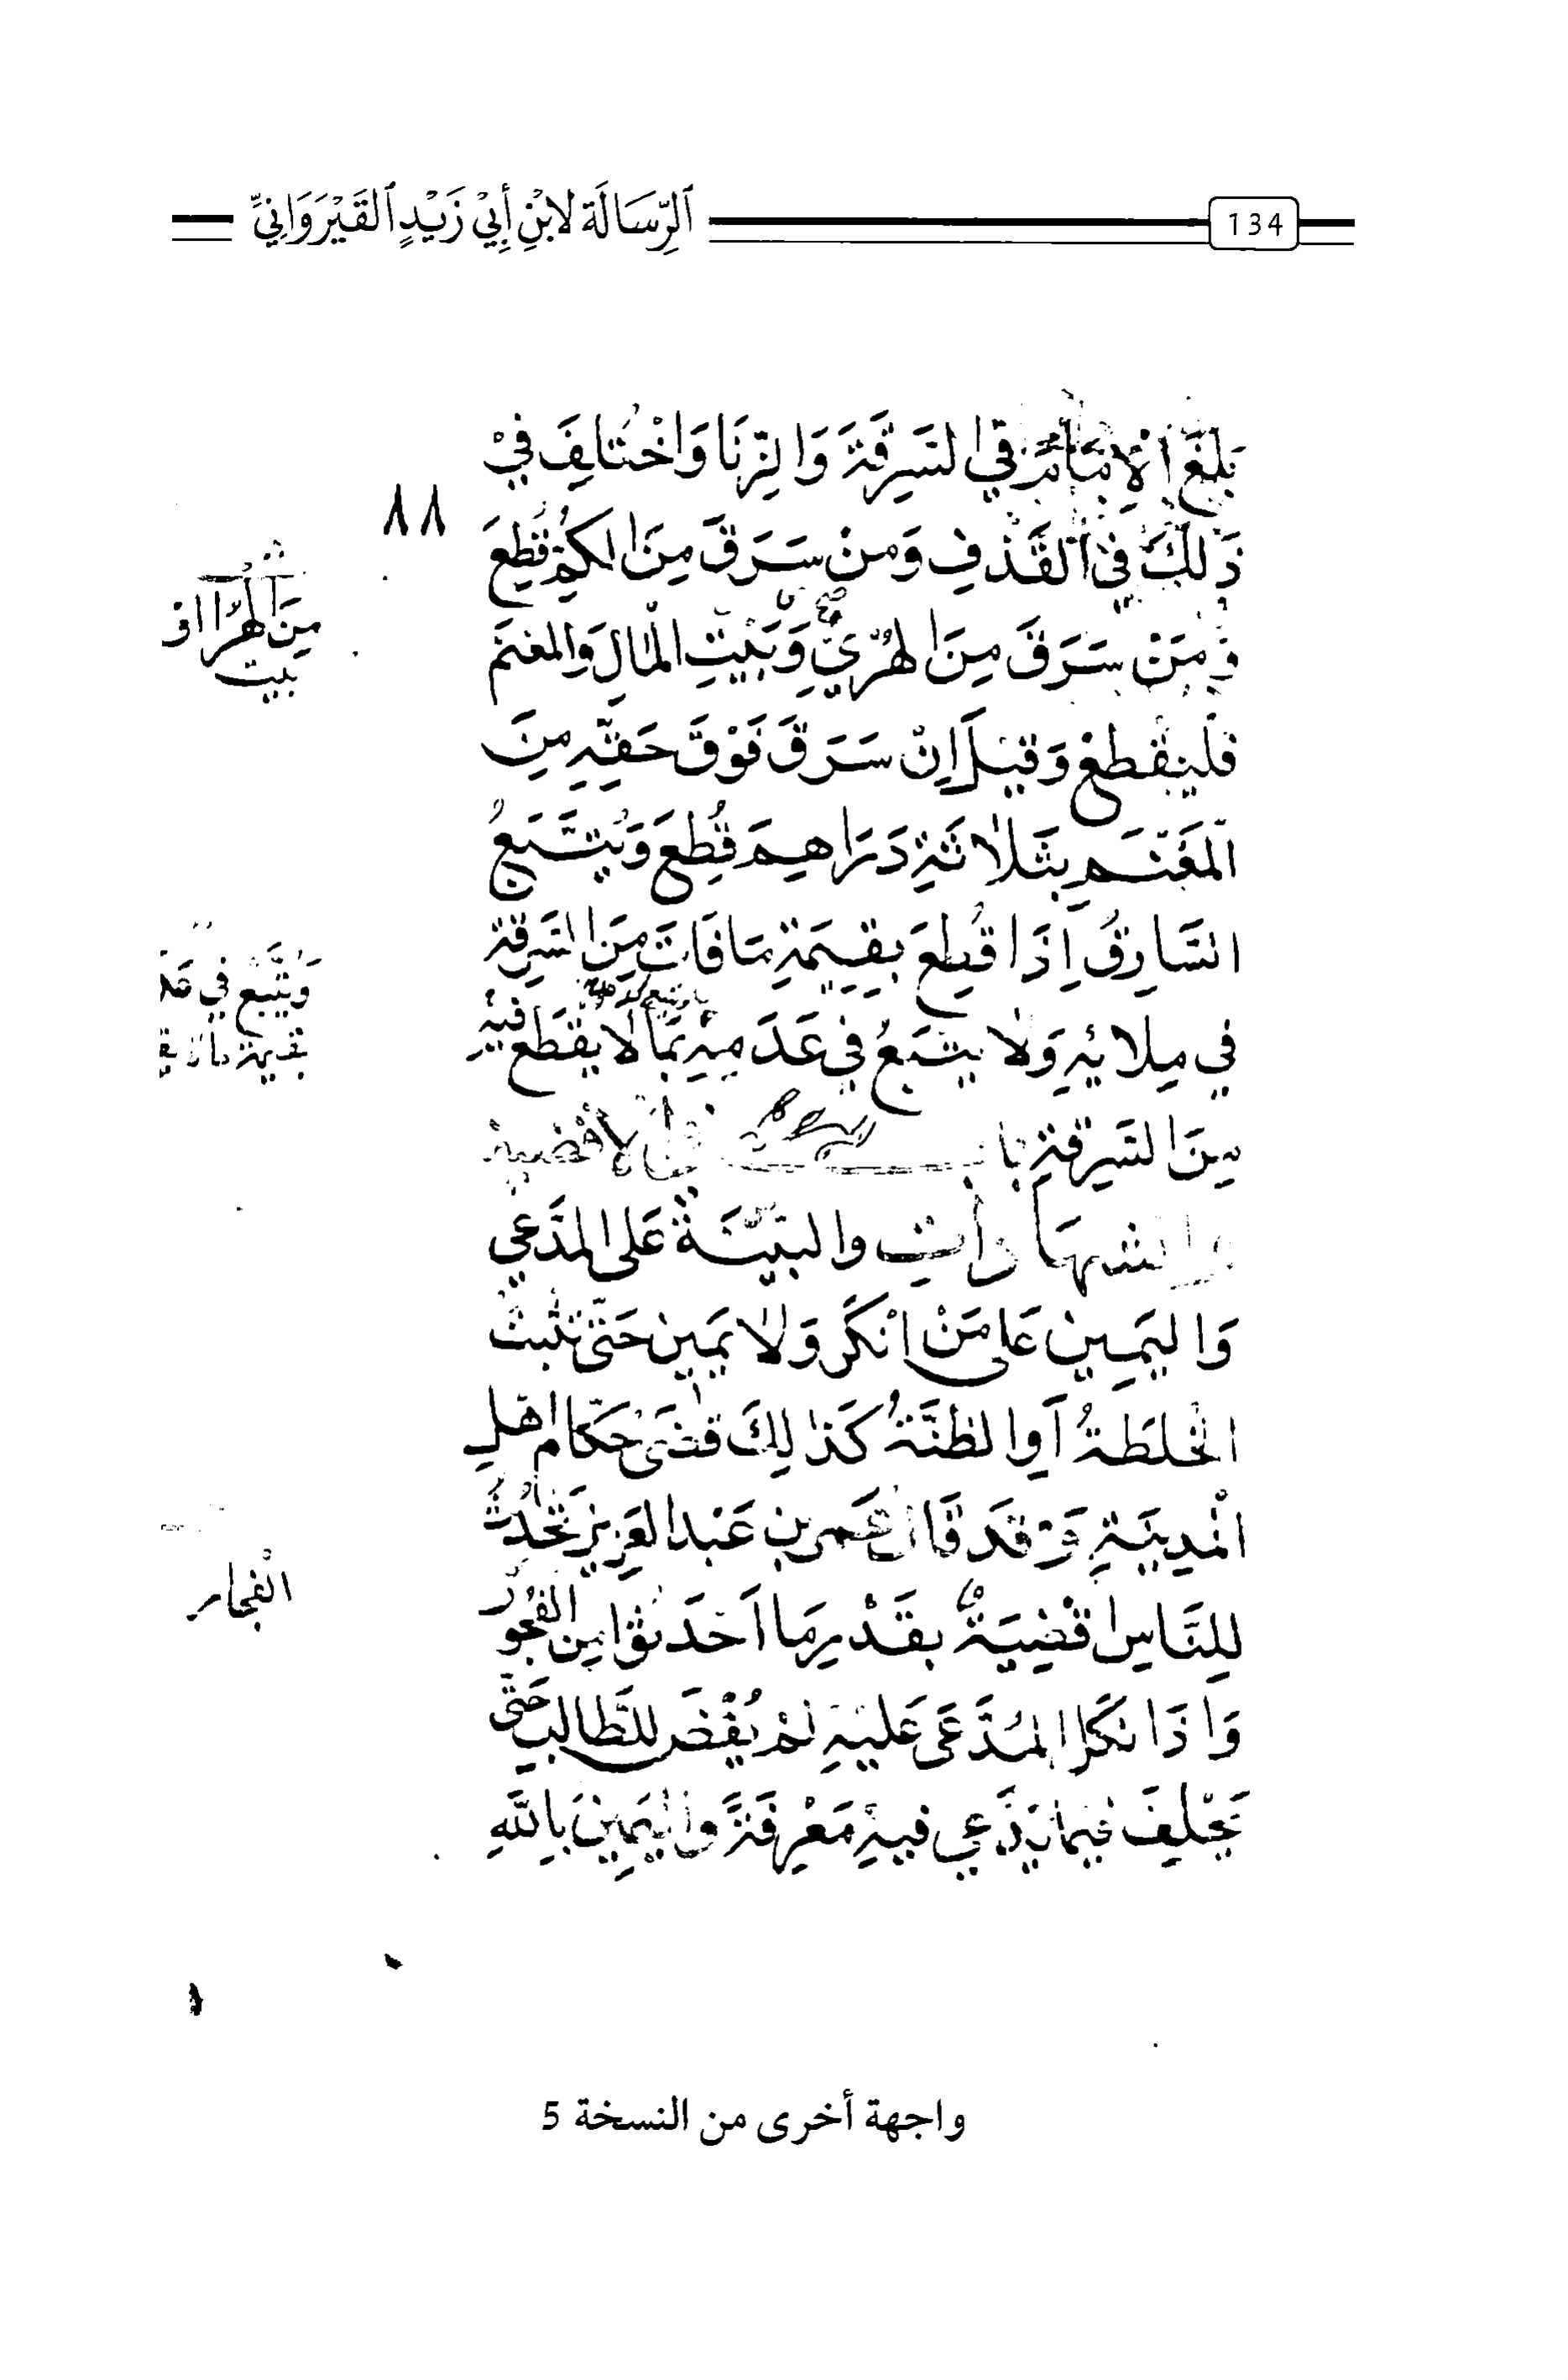 134
ٱلرِّسَالَة لِابْنِ أَبِيْ زَيْدٍ ٱلقَيْرَوَانِيِّ
بَلَغَ الْإِمَامَ في السَّرِقَةِ وَالزِّنَا وَاخْتُلِفَ فيْ
ذَلِكَ فِي الْقَذْفِ وَمنْ سَرَقَ مِنَ الكُمِّ قُطِعَ
٨٨
وَمَنْ سَرَقَ مِنَ الهُرْيِ وَبَيْتِ الْمَالِ وَالمغنَم
مِنَ الهُرْا اوْ
بَيت
فَليُقْطعْ وَقيْلَ اِنْ سَرَقَ فَوْقَ حَقِّهِ مِنَ
الْمَغْنَمِ بِثَلَاثَةِ دَرَاهِيمَ قُطِعَ وَيُتَّبَعُ
السَّارِقُ اِذَا قُطِعَ بِقِيمَةِ مَا فَاتَ مِنَ السَّرِقَة
وَيُتَّبَع في
قيمة ما
في مِلَائِهِ وَلَا يتْبَعُ في عَدَمِهِ بمَا لَا يُقْطَع فيْهِ
مِنَ السَّرِقَةِ بَاب في الاقْضية
والشهَادَاتِ والبَيِّنَةُ عَلى المدَّعي
وَاليَمِين عَلى مَنْ انْكَرَ وَلَا يَمِين حَتّى تثبتَ
الخلطَةُ اَوِ الظنَّةُ كَذَالِكَ قضَى حُكّام اهْلِ
الْمدِينَةِ وَقَدْ قَالَ عُمر بن عَبْد العَزِيز تَحْدُثُ
لِلنَّاسِ اقْضِيَةٌ بقَدْرِ مَا اَحْدَثُوا مِن الفُجُور
الْفجار
وَاذَا نَكَلَ المُدَّعَى عَليْهِ لَمْ يُقْضَ للطَّالب حَتّى
يَحْلِفَ فيمَا يَدَّعي فيهِ مَعْرِفَةً وَاليَمِينُ بِاللَّهِ
واجهة أخرى من النسخة 5